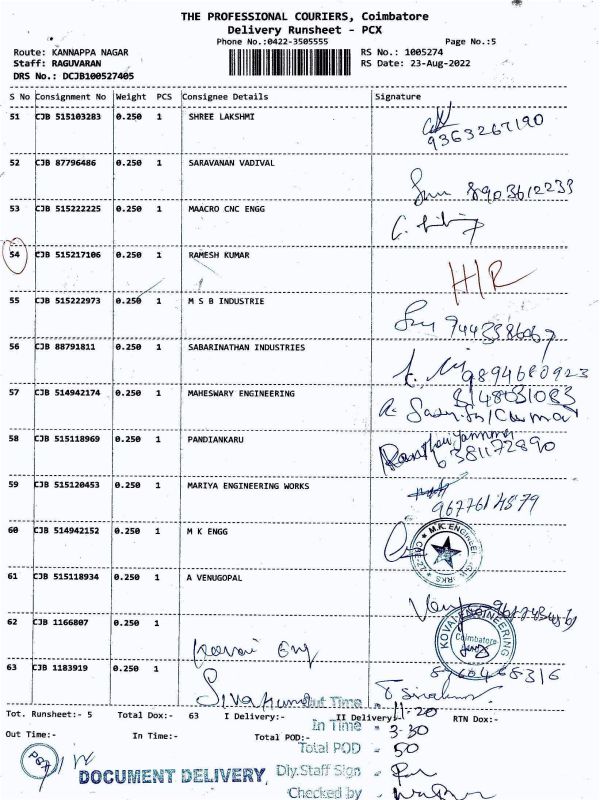 THE PROFESSIONAL COURIERS, Coimbatore
Delivery Runsheet - PCX
Phone No.:0422-3505555 Page No.:5
Route: KANNAPPA NAGAR RS No.: 1005274
Staff: RAGUVARAN RS Date: 23-Aug-2022
DRS No.: DCJB100527405
S No Consignment No Weight PCS Consignee Details Signature
51 CJB 515103283 0.250 1 SHREE LAKSHMI
9363267190
52 CJB 87796486 0.250 1 SARAVANAN VADIVAL
8903612233
53 CJB 515222225 0.250 1 MAACRO CNC ENGG
54 CJB 515217106 0.250 1 RAMESH KUMAR
H/R
55 CJB 515222973 0.250 1 M S B INDUSTRIE
56 CJB 88791811 0.250 1 SABARINATHAN INDUSTRIES
9894680923
57 CJB 514942174 0.250 1 MAHESWARY ENGINEERING
58 CJB 515118969 0.250 1 PANDIANKARU
6381172890
59 CJB 515120453 0.250 1 MARIYA ENGINEERING WORKS
9677614579
60 CJB 514942152 0.250 1 M K ENGG
M.K. ENGINEERING WORKS
61 CJB 515118934 0.250 1 A VENUGOPAL
62 CJB 1166807 0.250 1
Kovai Eng
KOVAI ENGINEERING
Coimbatore
63 CJB 1183919 0.250 1
Tot. Runsheet:- 5 Total Dox:- 63 I Delivery:- II Delivery:- RTN Dox:-
Out Time 11-20
Out Time:- In Time:- Total POD:-
In Time - 3-30
Total POD - 50
DOCUMENT DELIVERY
Dly.Staff Sign -
Checked by -